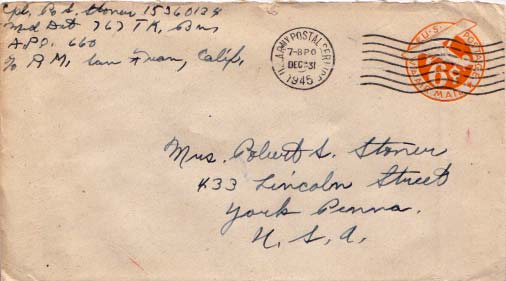 Cpl. R. S. Stoner 15360124
Med Det 767 TK. Bns
A.P.O. 660
c/o P.M. San Fran, Calif.
U.S. ARMY POSTAL SERVICE
7-8 PM
DEC 31
1945
U.S. POSTAGE
6¢
VIA AIR MAIL
Mrs. Robert S. Stoner
433 Lincoln Street
York Penna.
U. S. A.